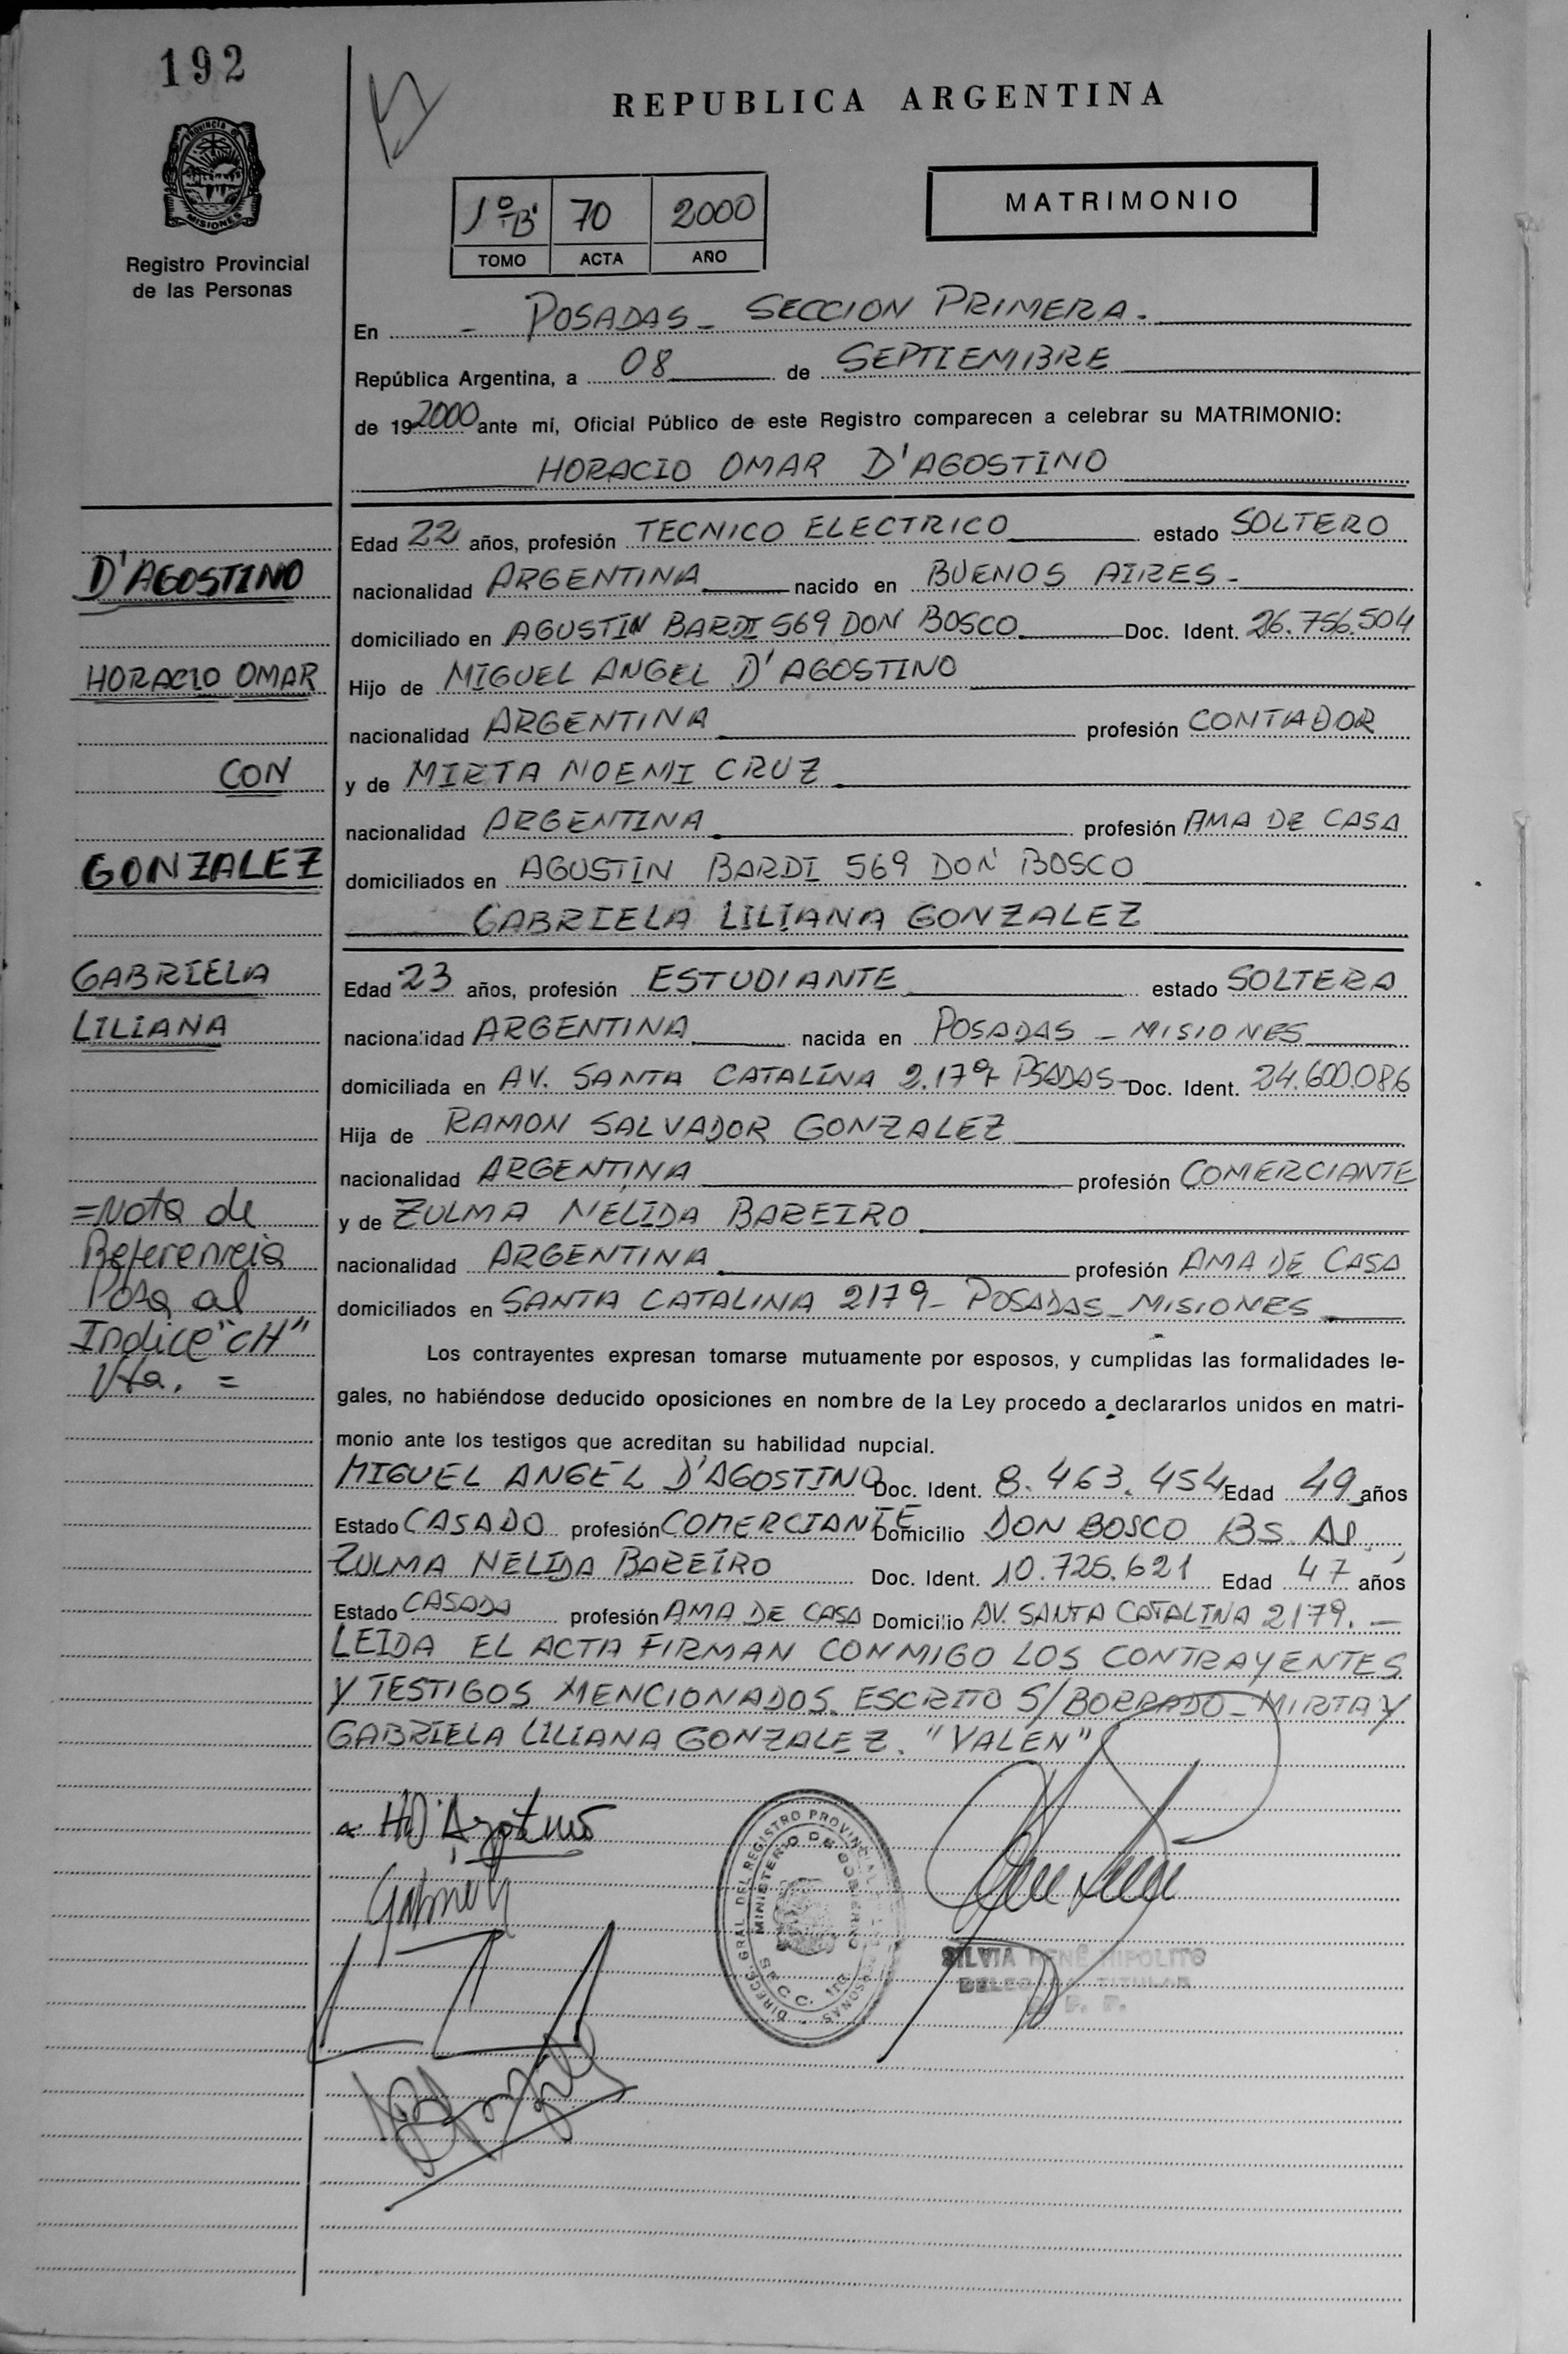 192
REPUBLICA ARGENTINA
PROVINCIA D MISIONES
Registro Provincial
de las Personas
1º "B" 70 2000
TOMO ACTA AÑO
MATRIMONIO
En - POSADAS - SECCION PRIMERA -
República Argentina, a 08 de SEPTIEMBRE
de 19 2000 ante mí, Oficial Público de este Registro comparecen a celebrar su MATRIMONIO:
HORACIO OMAR D'AGOSTINO
Edad 22 años, profesión TECNICO ELECTRICO estado SOLTERO
nacionalidad ARGENTINA nacido en BUENOS AIRES -
domiciliado en AGUSTIN BARDI 569 DON BOSCO Doc. Ident. 26.756.504
Hijo de MIGUEL ANGEL D'AGOSTINO
nacionalidad ARGENTINA profesión CONTADOR
y de MIRTA NOEMI CRUZ
nacionalidad ARGENTINA profesión AMA DE CASA
domiciliados en AGUSTIN BARDI 569 DON BOSCO
GABRIELA LILIANA GONZALEZ
Edad 23 años, profesión ESTUDIANTE estado SOLTERA
nacionalidad ARGENTINA nacida en POSADAS - MISIONES
domiciliada en AV. SANTA CATALINA 2.179 PSADAS - Doc. Ident. 24.600.086
Hija de RAMON SALVADOR GONZALEZ
nacionalidad ARGENTINA profesión COMERCIANTE
y de ZULMA NELIDA BAREIRO
nacionalidad ARGENTINA profesión AMA DE CASA
domiciliados en SANTA CATALINA 2179 - POSADAS - MISIONES
Los contrayentes expresan tomarse mutuamente por esposos, y cumplidas las formalidades le-
gales, no habiéndose deducido oposiciones en nombre de la Ley procedo a declararlos unidos en matri-
monio ante los testigos que acreditan su habilidad nupcial.
MIGUEL ANGEL D'AGOSTINO Doc. Ident. 8.463.454 Edad 49 años
Estado CASADO profesión COMERCIANTE Domicilio DON BOSCO BS. AS.
ZULMA NELIDA BAREIRO Doc. Ident. 10.725.621 Edad 47 años
Estado CASADA profesión AMA DE CASA Domicilio AV. SANTA CATALINA 2179. -
LEIDA EL ACTA FIRMAN CONMIGO LOS CONTRAYENTES
Y TESTIGOS MENCIONADOS. ESCRITO S/BORRADO - MIRTA Y
GABRIELA LILIANA GONZALEZ. "VALEN"
D'AGOSTINO
HORACIO OMAR
CON
GONZALEZ
GABRIELA
LILIANA
=Nota de
Referencia
Pasa al
Indice "CH"
Vta. =
HD'Agostino
DIRECC. GRAL. DEL REGISTRO PROVINCIAL PERSONAS
MINISTERIO DE GOBIERNO
SECC. 1ra.
SILVIA RENÉ HIPOLITO
DELEGADA TITULAR